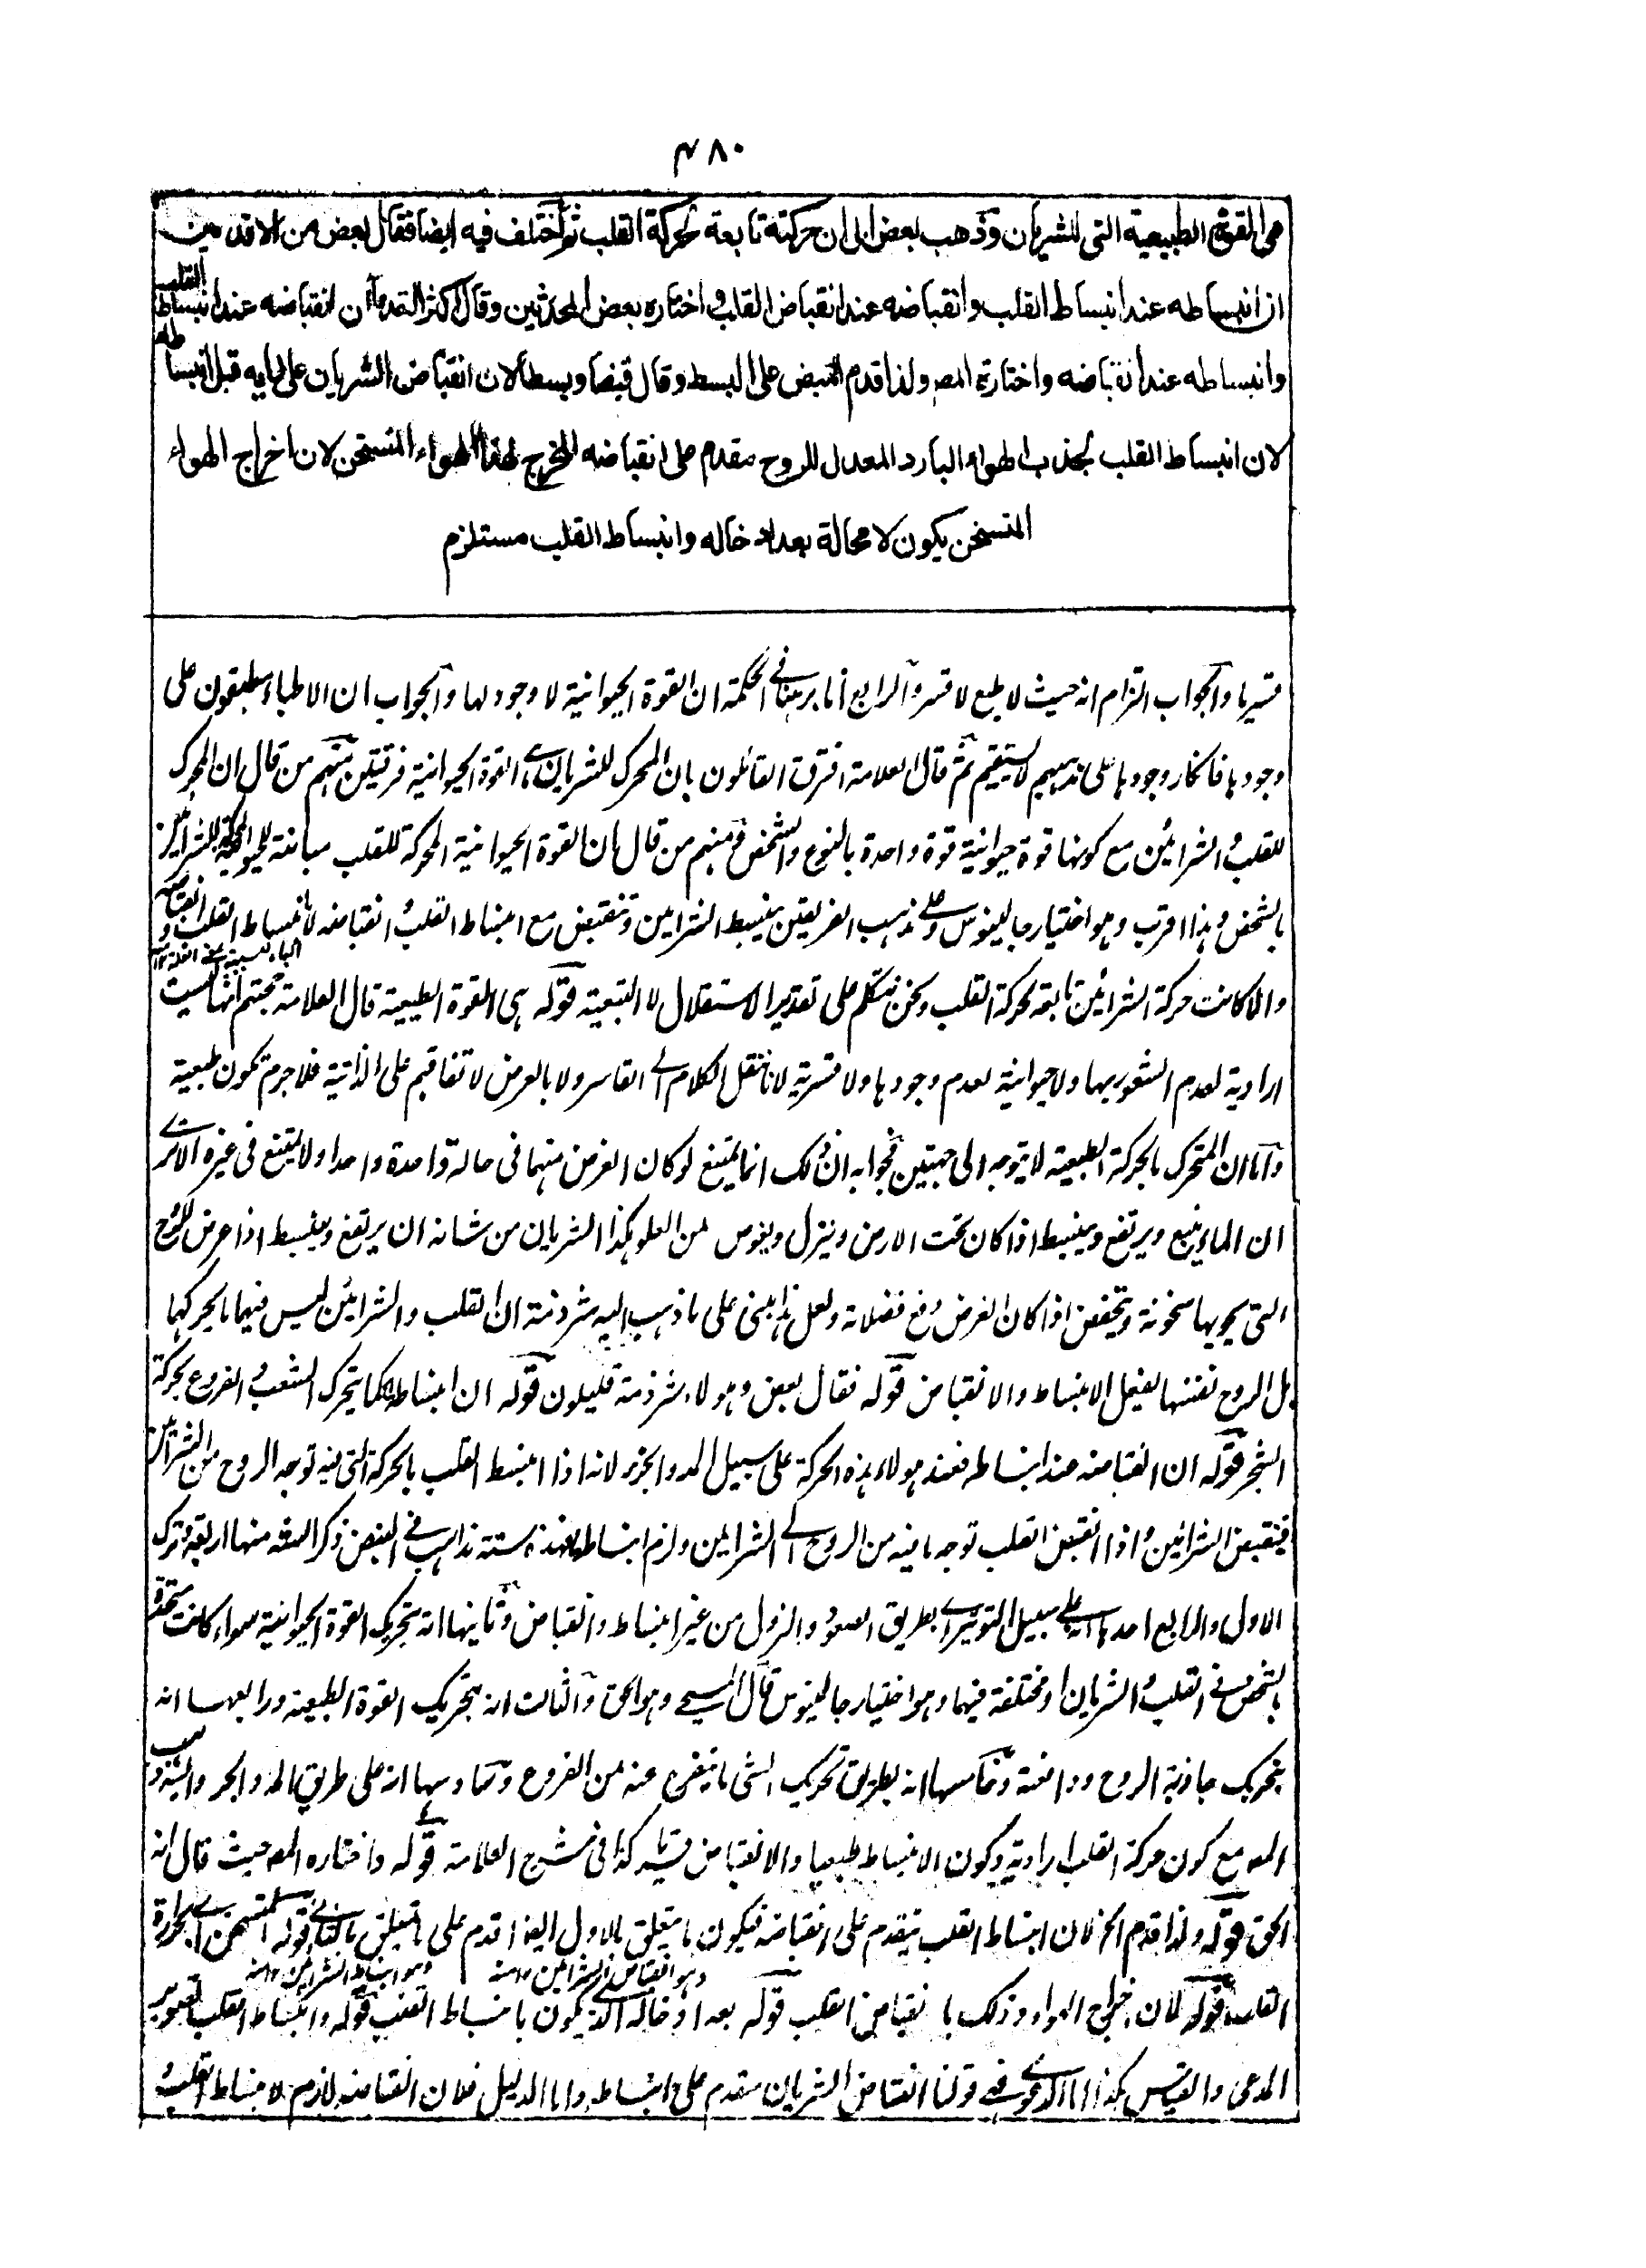 ٤٨٠
هى القوة الطبيعية التى للشريان وذهب بعض الى ان حركته تابعة لحركة القلب ثم اختلف فيه ايضا فقال بعض من الاقدمين
ان انبساطه عند انبساط القلب وانقباضه عند انقباض القلب واختاره بعض المحدثين وقال اكثر القدماء ان انقباضه عند انبساط القلب
وانبساطه عند انقباضه واختاره المص ولذا قدم القبض على البسط وقال قبضا وبسطا لان انقباض الشريان على رايه قبل انبساطه
لان انبساط القلب لجذب الهواء البارد المعدل للروح مقدم على انقباضه المخرج لهذا الهواء المتسخن لان اخراج الهواء
المتسخن يكون لا محالة بعد ادخاله وانبساط القلب مستلزم
قسريا والجواب التزام انه حيث لا طبع لا قسر والرابع انا برهنا فى الحكمة ان القوة الحيوانية لا وجود لها والجواب ان الاطباء يطبقون على
وجودها فانكار وجودها على مذهبهم لا يستقيم ثم قال العلامة افترق القائلون بان المحرك للشريان هى القوة الحيوانية فرقتين منهم من قال ان المحرك
للقلب والشرائين مع كونها قوة حيوانية قوة واحدة بالنوع والشخص ومنهم من قال ان القوة الحيوانية المحركة للقلب مباينة للحيوانية المحركة للشرائين
بالشخص وهذا اقرب وهو اختيار جالينوس وعلى مذهب الفريقين ينبسط الشرائين وتنقبض مع انبساط القلب وانقباضه لا بانبساط القلب وانقباضه
والا كانت حركة الشرائين تابعة لحركة القلب ونحن نتكلم على تقدير الاستقلال لا التبعية قوله هى القوة الطبيعية قال العلامة حجتهم انها ليست
ارادية لعدم الشعور بها ولا حيوانية لعدم وجودها ولا قسرية لانا ننقل الكلام الى القاسر ولا بالعرض لاتفاقهم على الذاتية فلا جرم تكون طبعية
واما ان المتحرك بالحركة الطبيعية لا يتوجه الى جهتين فجوابه ان ذلك انما يمتنع لو كان الغرض منهما فى حالة واحدة واحدا ولا يمتنع فى غيره الا ترى
ان الماء ينبع ويرتفع وينبسط اذا كان تحت الارض وينزل ويغوص من العلو هكذا الشريان من شانه ان يرتفع وينبسط اذا عرض للروح
التى يحويها سخونة وتخفض اذا كان الغرض دفع فضلاته ولعل هذا مبنى على ما ذهب اليه شرذمة ان القلب والشرائين ليس فيهما ما يحركها
بل الروح نفسها يفعل الانبساط والانقباض قوله فقال بعض وهولاء شرذمة قليلون قوله ان انبساطه كما يتحرك الشعب والفروع بحركة
الشجر قوله ان انقباضه عند انبساطه فعند هولاء هذه الحركة على سبيل المد والجزر لانه اذا انبسط القلب بالحركة التى فيه توجه الروح من الشرائين
فينقبض الشرائين واذا انقبض القلب توجه ما فيه من الروح الى الشرائين ولزم انبساطها فهذه ستة مذاهب فى النبض ذكر المص منها اربعة وترك
الاول والرابع احدها انه على سبيل التوتير اى بطريق الصعود والنزول من غير انبساط وانقباض وثانيها انه بتحريك القوة الحيوانية سواء كانت متحدة
بالشخص فى القلب والشريان او مختلفة فيهما وهو اختيار جالينوس قال المسيحى وهو الحق والثالث انه بتحريك القوة الطبيعية ورابعها انه
بتحريك جاذبة الروح ودافعته وخامسها انه بطريق تحريك الشى ما يتفرع عنه من الفروع وسادسها انه على طريق المد والجزر واليه ذهب
المص مع كون حركة القلب ارادية وكون الانبساط طبيعيا والانقباض قسريا كذا فى شرح العلامة قوله واختاره المص حيث قال انه
الحق قوله ولذا قدم الخ لان انبساط القلب يتقدم على انقباضه فيكون ما يتعلق بالاول ايضا اقدم على ما يتعلق بالثانى قوله المتسخن اى بحرارة
القلب قوله لان اخراج الهواء وذلك بانقباض القلب قوله بعد ادخاله الذى يكون بانبساط القلب قوله وانبساط القلب تصوير
المدعى والقياس هكذا اما الدعوى فهى قولنا انقباض الشريان مقدم على انبساطه واما الدليل فلان انقباضه لازم لانبساط القلب و